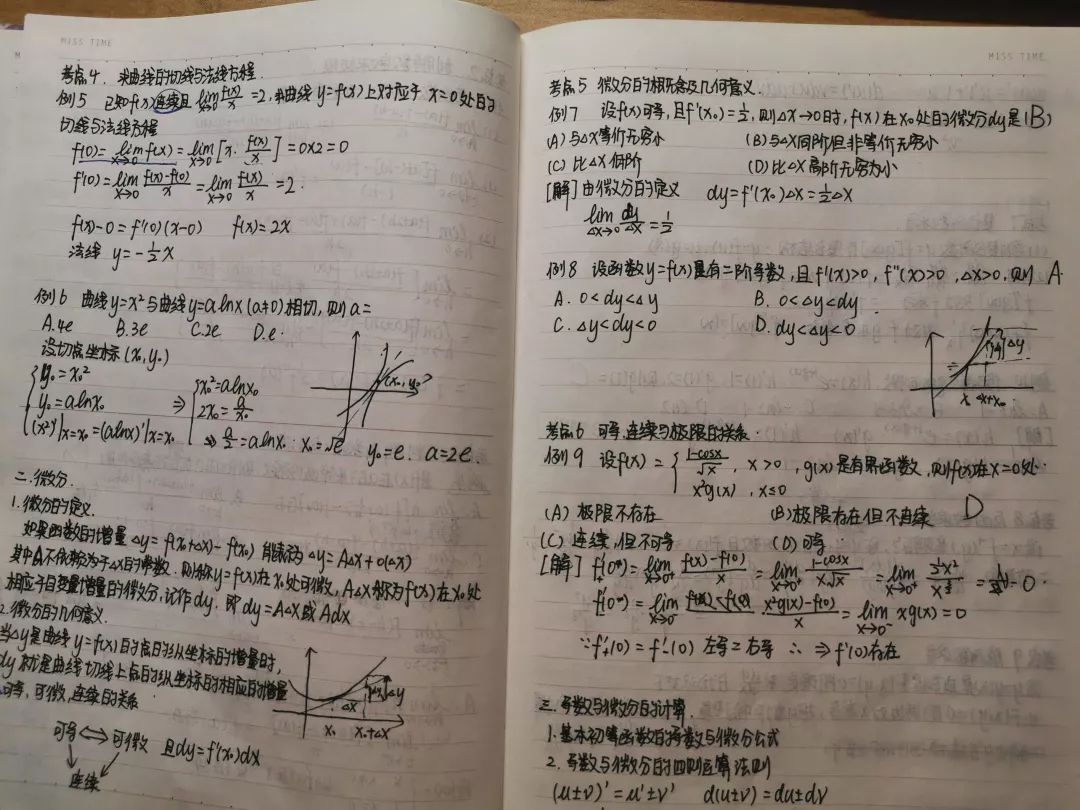 MISS TIME
考点4. 求曲线的切线与法线方程.
例5 已知f(x)连续且 lim_{x→0} f(x)/x = 2, 求曲线 y=f(x)上对应于 x=0处的
切线与法线方程
f(0) = lim_{x→0} f(x) = lim_{x→0} [x · f(x)/x] = 0×2 = 0
f'(0) = lim_{x→0} (f(x)-f(0))/x = lim_{x→0} f(x)/x = 2.
f(x)-0 = f'(0)(x-0) f(x) = 2x
法线 y = -½x
例6 曲线y=x²与曲线y=alnx (a≠0)相切, 则a=
A.4e B.3e C.2e D.e
设切点坐标 (x₀,y₀)
y₀ = x₀²
y₀ = alnx₀
(x²)'|x=x₀ = (alnx)'|x=x₀
⇒ x₀² = alnx₀
2x₀ = a/x₀
⇒ a/2 = alnx₀ x₀ = √e y₀ = e. a = 2e.
(x₀, y₀)
二.微分.
1.微分的定义.
如果函数的增量 Δy = f(x₀+Δx) - f(x₀) 能表示为 Δy = AΔx + o(Δx)
其中A不依赖于Δx的常数. 则称y=f(x)在x₀处可微, AΔx称为f(x)在x₀处
相应于自变量增量的微分, 记作dy. 即 dy = AΔx 或 Adx
2.微分的几何意义.
当Δy是曲线 y=f(x)的点的纵坐标的增量时,
dy 就是曲线切线上点的纵坐标的相应的增量
可导, 可微, 连续的关系
Δx Δy
x₀ x₀+Δx
可导 ⇔ 可微 且dy = f'(x₀)dx
连续
MISS TIME
考点5 微分的概念及几何意义.
例7 设f(x)可导, 且f'(x₀) = ½, 则Δx→0时, f(x)在x₀处的微分dy是(B)
(A)与Δx等价无穷小 (B)与Δx同阶但非等价无穷小
(C)比Δx低阶 (D)比Δx高阶无穷小
[解]由微分的定义 dy = f'(x₀)Δx = ½Δx
lim_{Δx→0} dy/Δx = ½
例8 设函数y=f(x)具有二阶导数, 且f'(x)>0, f''(x)>0, Δx>0, 则 A
A. 0<dy<Δy B. 0<Δy<dy
C. Δy<dy<0 D. dy<Δy<0
Δy
考点6 可导,连续与极限的关系.
例9 设f(x) = { (1-cosx)/√x, x>0
x²g(x), x≤0 , g(x)是有界函数, 则f(x)在x=0处
(A) 极限不存在 (B)极限存在但不连续 D
(C) 连续, 但不可导 (D) 可导
[解] f'₊(0⁺) = lim_{x→0⁺} (f(x)-f(0))/x = lim_{x→0⁺} (1-cosx)/(x√x) = lim_{x→0⁺} ½x²/x^{3/2} = 0.
f'(0⁻) = lim_{x→0⁻} (x²g(x)-f(0))/x = lim_{x→0⁻} xg(x) = 0
∵f'₊(0) = f'₋(0) 左导=右导 ∴ ⇒ f'(0)存在
三. 导数与微分的计算.
1. 基本初等函数的导数与微分公式
2. 导数与微分的四则运算法则
(u±v)' = u'±v' d(u±v) = du±dv